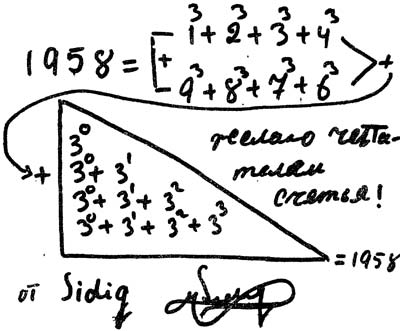 1³ + 2³ + 3³ + 4³
1958 = +
9³ + 8³ + 7³ + 6³ +
3⁰
+ 3⁰ + 3¹
3⁰ + 3¹ + 3²
3⁰ + 3¹ + 3² + 3³
= 1958
желаю чита-
телям
счастья!
от Sidiq